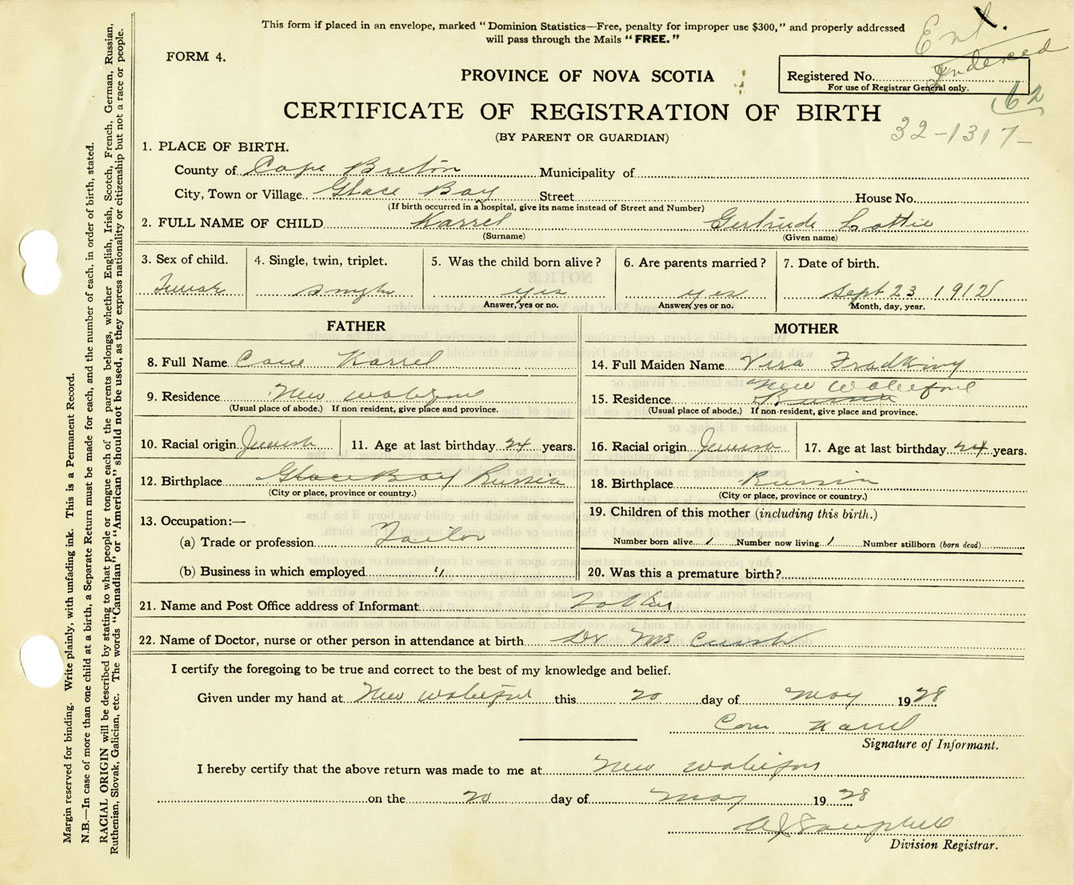 This form if placed in an envelope, marked "Dominion Statistics—Free, penalty for improper use $300," and properly addressed
will pass through the Mails "FREE."
Ent.
Indexed
FORM 4.
PROVINCE OF NOVA SCOTIA
Registered No.
For use of Registrar General only.
62
CERTIFICATE OF REGISTRATION OF BIRTH
32-1317-
(BY PARENT OR GUARDIAN)
1. PLACE OF BIRTH.
County of Cape Breton Municipality of
City, Town or Village Glace Bay Street House No.
(If birth occurred in a hospital, give its name instead of Street and Number)
2. FULL NAME OF CHILD Karrel Gertrude Lottie
(Surname) (Given name)
3. Sex of child. 4. Single, twin, triplet. 5. Was the child born alive? 6. Are parents married? 7. Date of birth.
yes yes Sept 23 1912
Answer, yes or no. Answer, yes or no. Month, day, year.
FATHER MOTHER
8. Full Name Karrel 14. Full Maiden Name Vera
9. Residence New 15. Residence New
(Usual place of abode.) If non resident, give place and province. (Usual place of abode.) If non-resident, give place and province.
10. Racial origin Jewish 11. Age at last birthday 24 years. 16. Racial origin Jewish 17. Age at last birthday 24 years.
12. Birthplace Glace Bay Russia 18. Birthplace Russia
(City or place, province or country.) (City or place, province or country.)
13. Occupation:— 19. Children of this mother (including this birth.)
(a) Trade or profession Tailor Number born alive 1 Number now living 1 Number stillborn (born dead)
(b) Business in which employed " 20. Was this a premature birth?
21. Name and Post Office address of Informant Father
22. Name of Doctor, nurse or other person in attendance at birth Dr
I certify the foregoing to be true and correct to the best of my knowledge and belief.
Given under my hand at New this 20 day of May 1928
Karrel
Signature of Informant.
I hereby certify that the above return was made to me at New
on the 20 day of May 1928
Campbell
Division Registrar.
Margin reserved for binding. Write plainly, with unfading ink. This is a Permanent Record.
N.B.—In case of more than one child at a birth, a Separate Return must be made for each, and the number of each, in order of birth, stated.
RACIAL ORIGIN will be described by stating to what people or tongue each of the parents belongs, whether English, Irish, Scotch, French, German, Russian,
Ruthenian, Slovak, Galician, etc. The words "Canadian" or "American" should not be used, as they express nationality or citizenship but not a race or people.